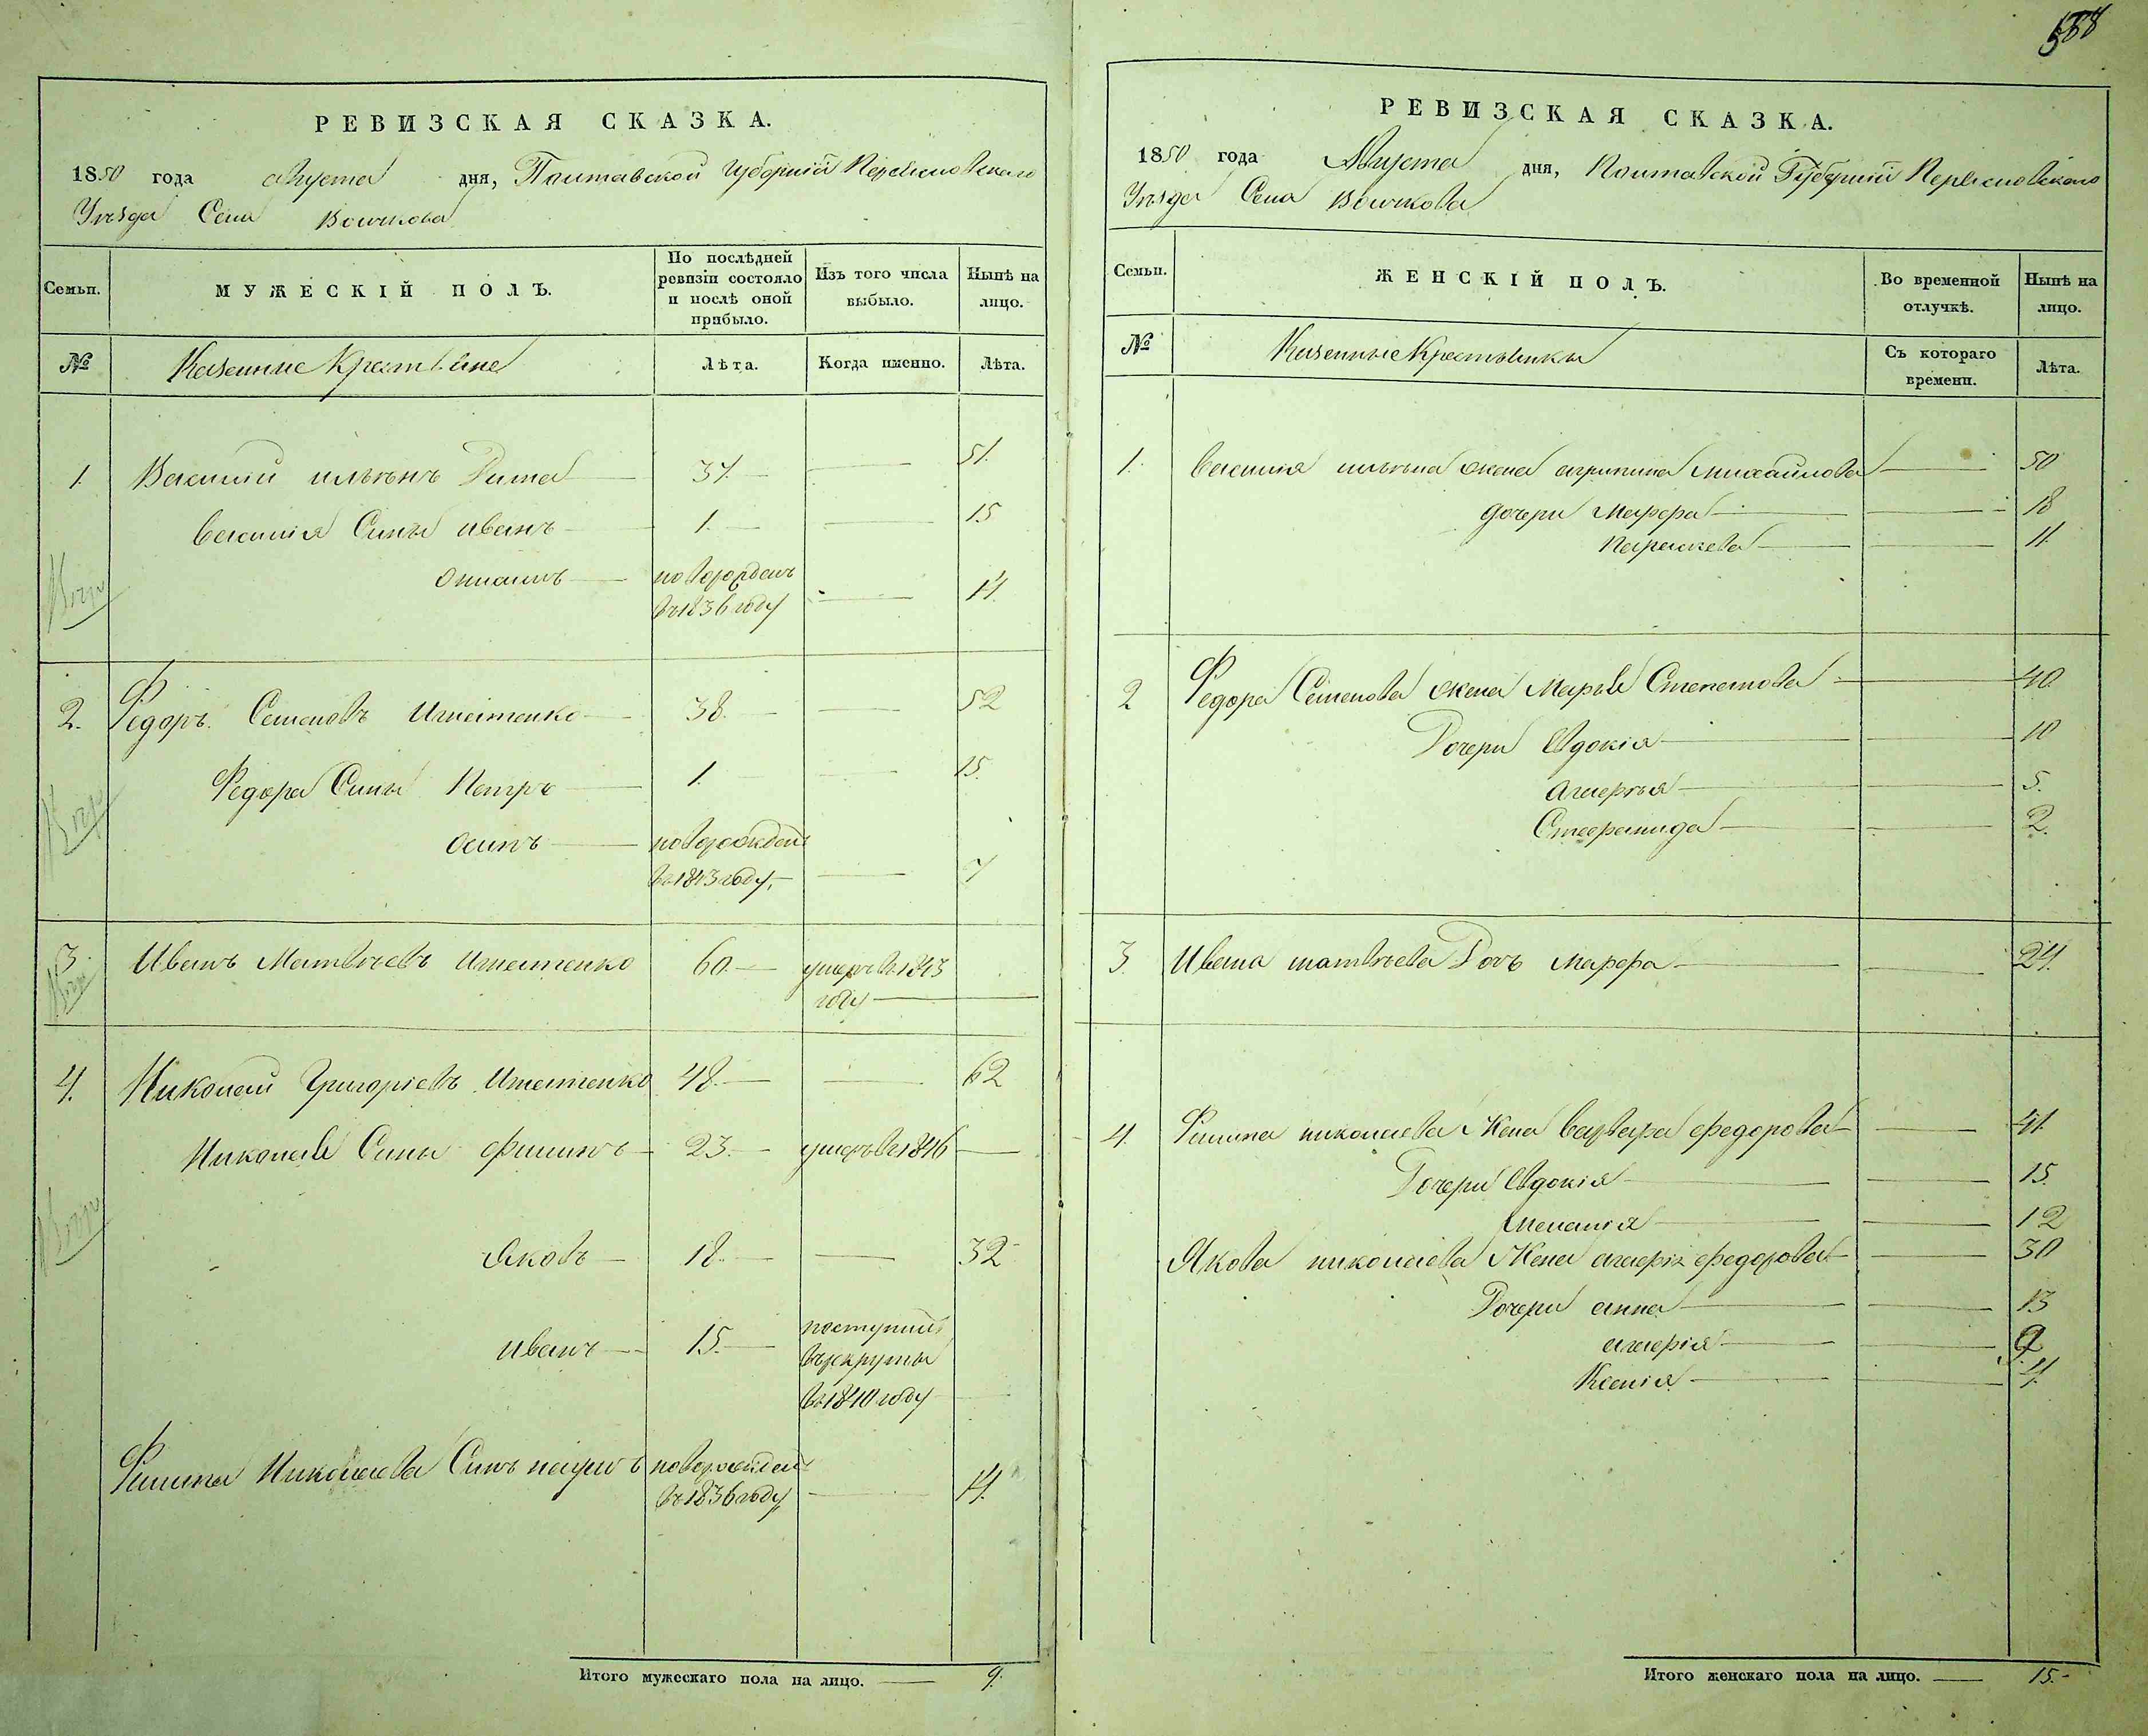 588
РЕВИЗСКАЯ СКАЗКА.
1850 года Августа дня, Полтавской Губерніи Переясловскаго
Уѣзда Села Войткова
Семьи. МУЖЕСКІЙ ПОЛЪ. По послѣдней ревизіи состояло и послѣ оной прибыло. Изъ того числа выбыло. Нынѣ на лицо.
№ Казенные Крестьяне Лѣта. Когда именно. Лѣта.
1. Василій Ильинъ 37. 51.
Василія Сыны Иванъ 1. 15
новорожденъ
въ 1836 году 14.
2. Федоръ Семеновъ Игнатенко 38. 52
Федора Сыны Петръ 1. 15.
Осипъ новорожденъ
въ 1843 году, 7
3. Иванъ Матвѣевъ Игнатенко 60. умеръ въ 1843
году
4. Николай Григоріевъ Игнатенко 48. 62
Николая Сыны Филипъ 23. умеръ въ 1846
Яковъ 18. 32
Иванъ 15. поступилъ
въ рекруты
въ 1840 году
Филипа Николаева Сынъ новорожденъ
въ 1836 году 14.
Итого мужескаго пола на лицо. 9.
РЕВИЗСКАЯ СКАЗКА.
1850 года Августа дня, Полтавской Губерніи Переясловскаго
Уѣзда Села Войткова
Семьи. ЖЕНСКІЙ ПОЛЪ. Во временной отлучкѣ. Нынѣ на лицо.
№ Казенные Крестьянки Съ котораго времени. Лѣта.
1. Василія Ильина жена Агрипина Михайлова 50
дочери Марфа 18
Параскева 11.
2 Федора Семенова жена Марья Степанова 40
Дочери Евдокія 10
Агафья 5.
Стефанида 2.
3. Ивана Матвѣева Дочъ Марфа 24.
4. Филипа Николаева Жена Варвара Федорова 41
Дочери Евдокія 15.
Меланія 12
Якова Николаева Жена Агафія Федорова 30
Дочери Анна 13
Агафія 9.
Ксенія 4.
Итого женскаго пола на лицо. 15.